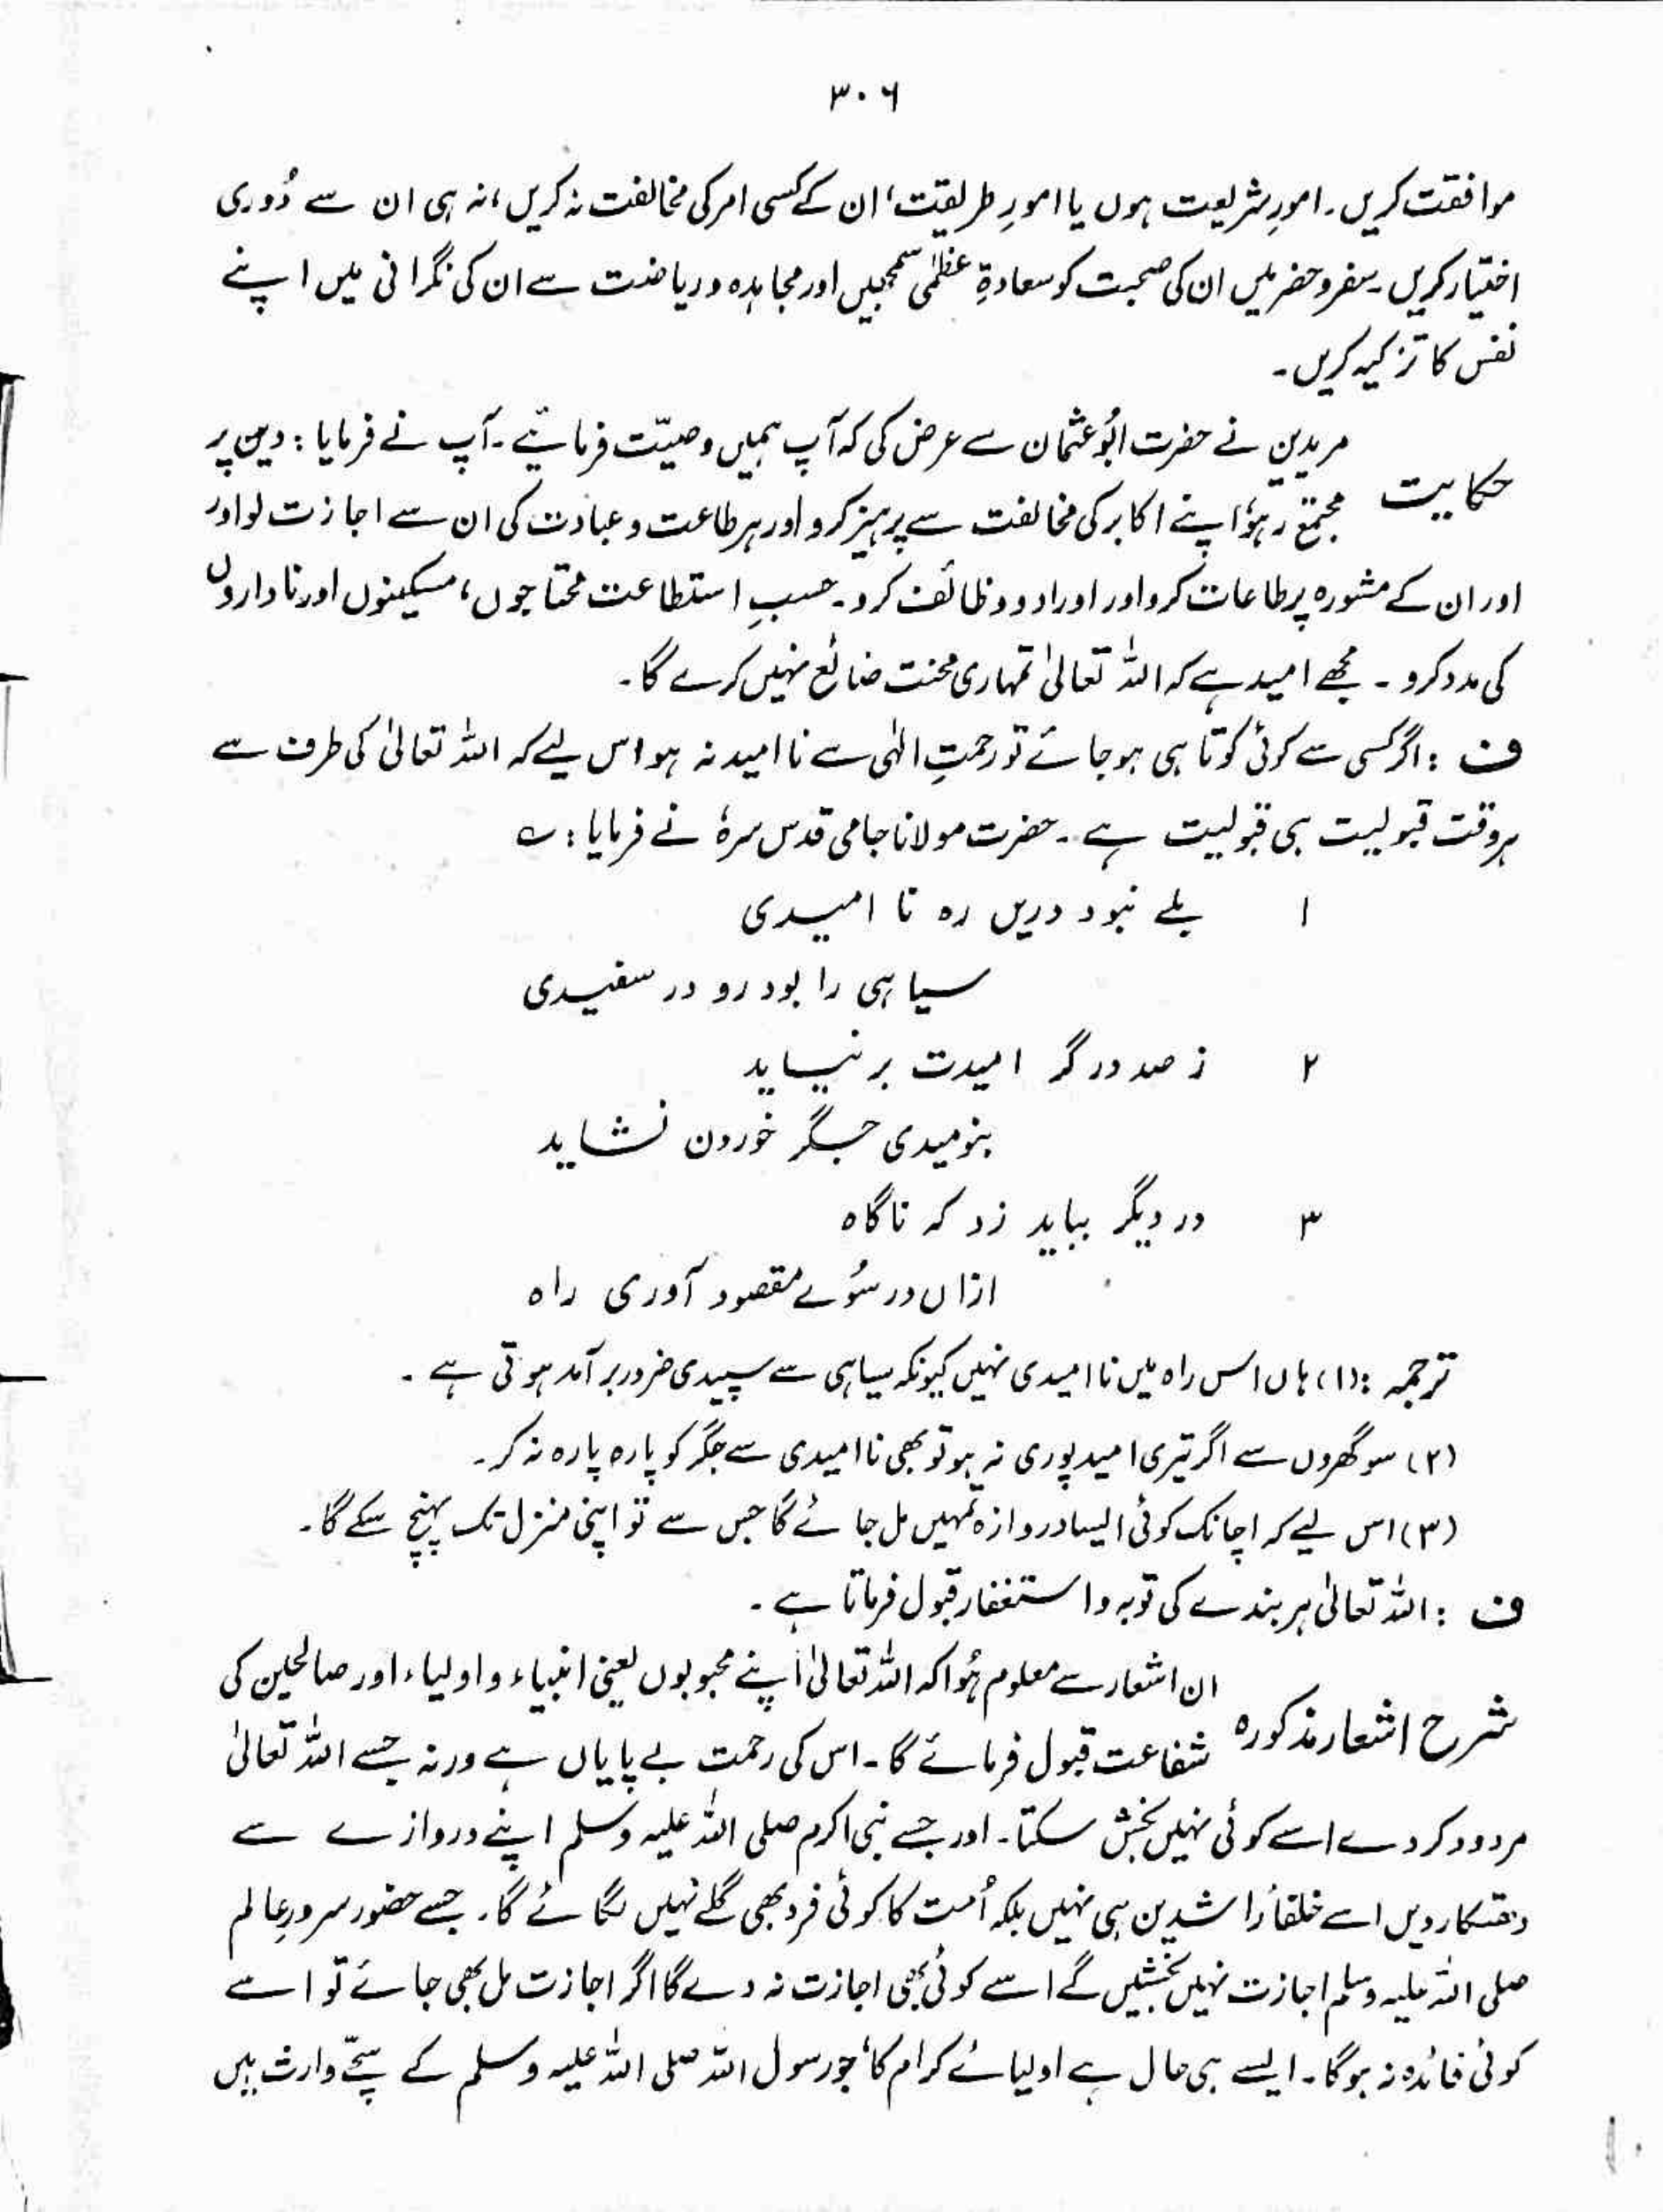 ۳۰۶
موافقت کریں۔ امورِ شریعت ہوں یا امورِ طریقت، ان کے کسی امر کی مخالفت نہ کریں، نہ ہی ان سے دُوری
اختیار کریں۔ سفر و حضر میں ان کی صحبت کو سعادۃِ عظمٰی سمجھیں اور مجاہدہ و ریاضت سے ان کی نگرانی میں اپنے
نفس کا تزکیہ کریں۔
حکایت
مریدین نے حضرت ابُو عثمان سے عرض کی کہ آپ ہمیں وصیّت فرمائیے۔ آپ نے فرمایا : دین پر
مجتمع رہو، اپنے اکابر کی مخالفت سے پرہیز کرو اور ہر طاعت و عبادت کی ان سے اجازت لو اور
اور ان کے مشورہ پر طاعات کرو اور اوراد و وظائف کرو۔ حسبِ استطاعت محتاجوں، مسکینوں اور ناداروں
کی مدد کرو۔ مجھے امید ہے کہ اللہ تعالیٰ تمہاری محنت ضائع نہیں کرے گا۔
ف : اگر کسی سے کوئی کوتاہی ہو جائے تو رحمتِ الٰہی سے نا امید نہ ہو اس لیے کہ اللہ تعالیٰ کی طرف سے
ہر وقت قبولیت ہی قبولیت ہے۔ حضرت مولانا جامی قدس سرہٗ نے فرمایا : ؎
۱ بلے نبود دریں رہ نا امیدی
سیاہی را بود رو در سفیدی
۲ ز صد در گر امیدت بر نیاید
بنومیدی جگر خوردن نشاید
۳ در دیگر بباید زد کہ ناگاہ
ازاں در سُوئے مقصود آوری راہ
ترجمہ : (۱) ہاں اس راہ میں نا امیدی نہیں کیونکہ سیاہی سے سپیدی ضرور برآمد ہوتی ہے۔
(۲) سو گھروں سے اگر تیری امید پوری نہ ہو تو بھی نا امیدی سے جگر کو پارہ پارہ نہ کر۔
(۳) اس لیے کہ اچانک کوئی ایسا دروازہ تمہیں مل جائے گا جس سے تو اپنی منزل تک پہنچ سکے گا۔
ف : اللہ تعالیٰ ہر بندے کی توبہ و استغفار قبول فرماتا ہے۔
شرح اشعار مذکورہ
ان اشعار سے معلوم ہُوا کہ اللہ تعالیٰ اپنے محبوبوں یعنی انبیاء و اولیاء اور صالحین کی
شفاعت قبول فرمائے گا۔ اس کی رحمت بے پایاں ہے ورنہ جسے اللہ تعالیٰ
مردود کر دے اسے کوئی نہیں بخش سکتا۔ اور جسے نبی اکرم صلی اللہ علیہ وسلم اپنے دروازے سے
دھتکار دیں اسے خلفاء راشدین ہی نہیں بلکہ اُمت کا کوئی فرد بھی گلے نہیں لگائے گا۔ جسے حضور سرورِ عالم
صلی اللہ علیہ وسلم اجازت نہیں بخشیں گے اسے کوئی بھی اجازت نہ دے گا اگر اجازت مل بھی جائے تو اسے
کوئی فائدہ نہ ہوگا۔ ایسے ہی حال ہے اولیائے کرام کا، جو رسول اللہ صلی اللہ علیہ وسلم کے سچّے وارث ہیں